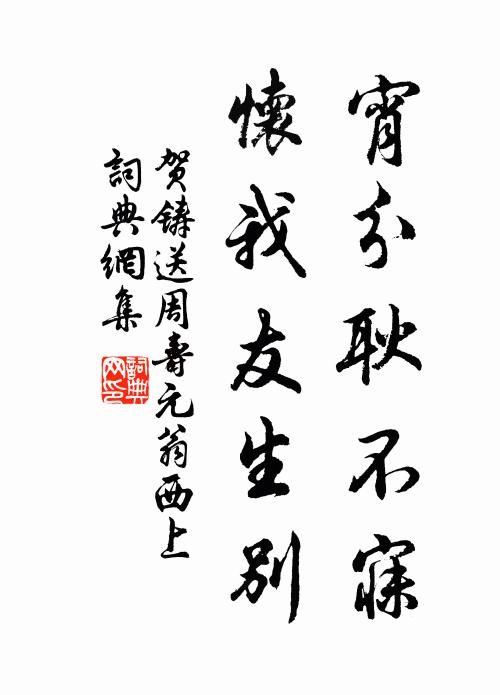 宵分耿不寐
懷我友生別
贺鑄送周壽元翁西上
詞典網集
詞典網印